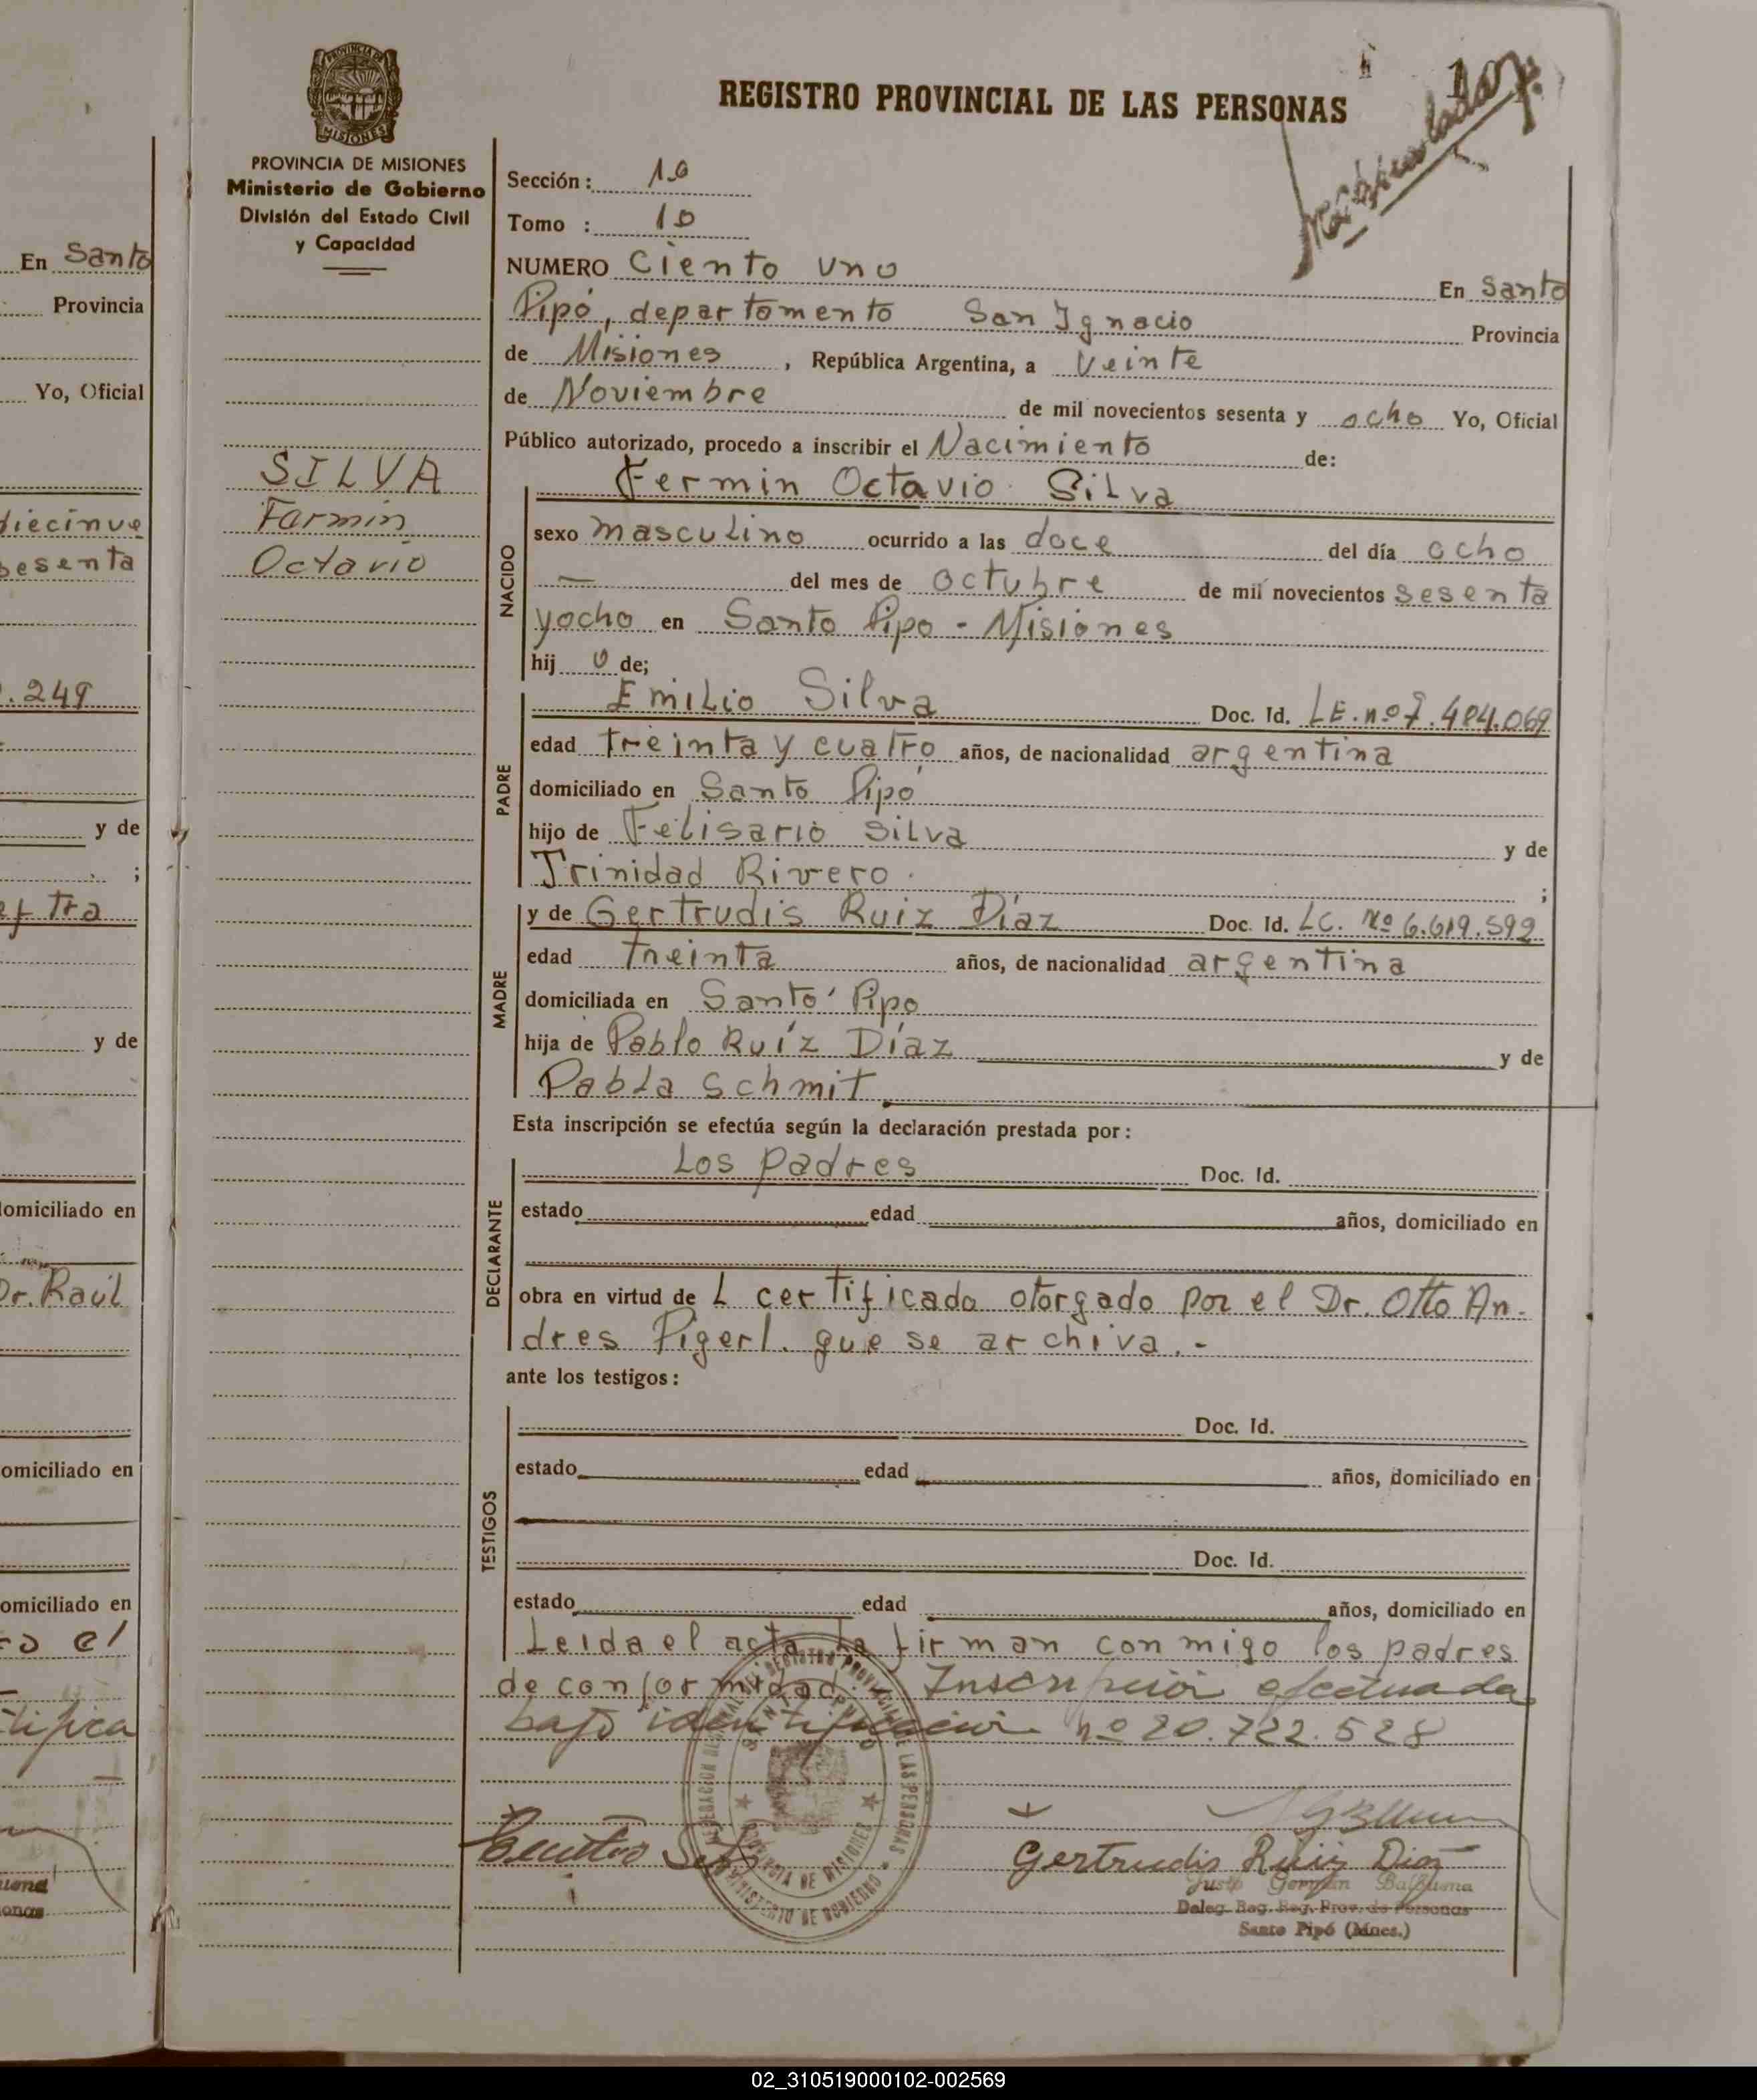 PROVINCIA DE
MISIONES
REGISTRO PROVINCIAL DE LAS PERSONAS
1
PROVINCIA DE MISIONES
Ministerio de Gobierno
División del Estado Civil
y Capacidad
SILVA
Farmin
Octavio
Sección: 1º
Tomo : 1º
NUMERO Ciento uno En Santo
Pipó, departamento San Ignacio Provincia
de Misiones, República Argentina, a veinte
de Noviembre de mil novecientos sesenta y ocho Yo, Oficial
Público autorizado, procedo a inscribir el Nacimiento de:
Fermin Octavio Silva
NACIDO
sexo masculino ocurrido a las doce del día ocho
— del mes de octubre de mil novecientos sesenta
yocho en Santo Pipo - Misiones
hij o de;
PADRE
Emilio Silva Doc. Id. LE. nº 7.484.069
edad treinta y cuatro años, de nacionalidad argentina
domiciliado en Santo Pipó
hijo de Felisario Silva y de
Trinidad Rivero. ;
MADRE
y de Gertrudis Ruiz Díaz Doc. Id. LC. Nº 6.619.592
edad treinta años, de nacionalidad argentina
domiciliada en Santo Pipo
hija de Pablo Ruíz Díaz y de
Pabla Schmit
Esta inscripción se efectúa según la declaración prestada por:
DECLARANTE
Los padres Doc. Id.
estado edad años, domiciliado en
obra en virtud de L certificado otorgado por el Dr. Otto An-
dres Pigerl. que se archiva.-
ante los testigos:
TESTIGOS
Doc. Id.
estado edad años, domiciliado en
Doc. Id.
estado edad años, domiciliado en
Leida el acta la firman conmigo los padres
de conformidad. Inscripción efectuada
bajo identificación nº 20.722.528
Gertrudis Ruiz Diaz
Justo Germán Balbuena
Deleg. Reg. Reg. Prov. de Personas
Santo Pipó (Mnes.)
En Santo
Provincia
Yo, Oficial
diecinue
sesenta
.249
y de
;
y de
omiciliado en
Dr. Raúl
omiciliado en
omiciliado en
el
tifica
02_310519000102-002569